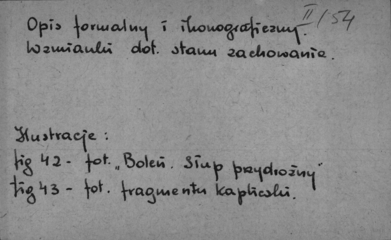 Opis formalny i ikonograficzny. II/54
Wzmianki dot. stanu zachowania.
Ilustracje:
fig 42 - fot. „Boleń. Słup przydrożny"
fig 43 - fot. fragmentu kapliczki.